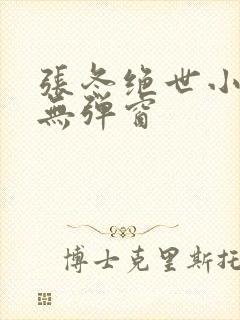 張冬绝世小
無弹窗
博士克里斯托